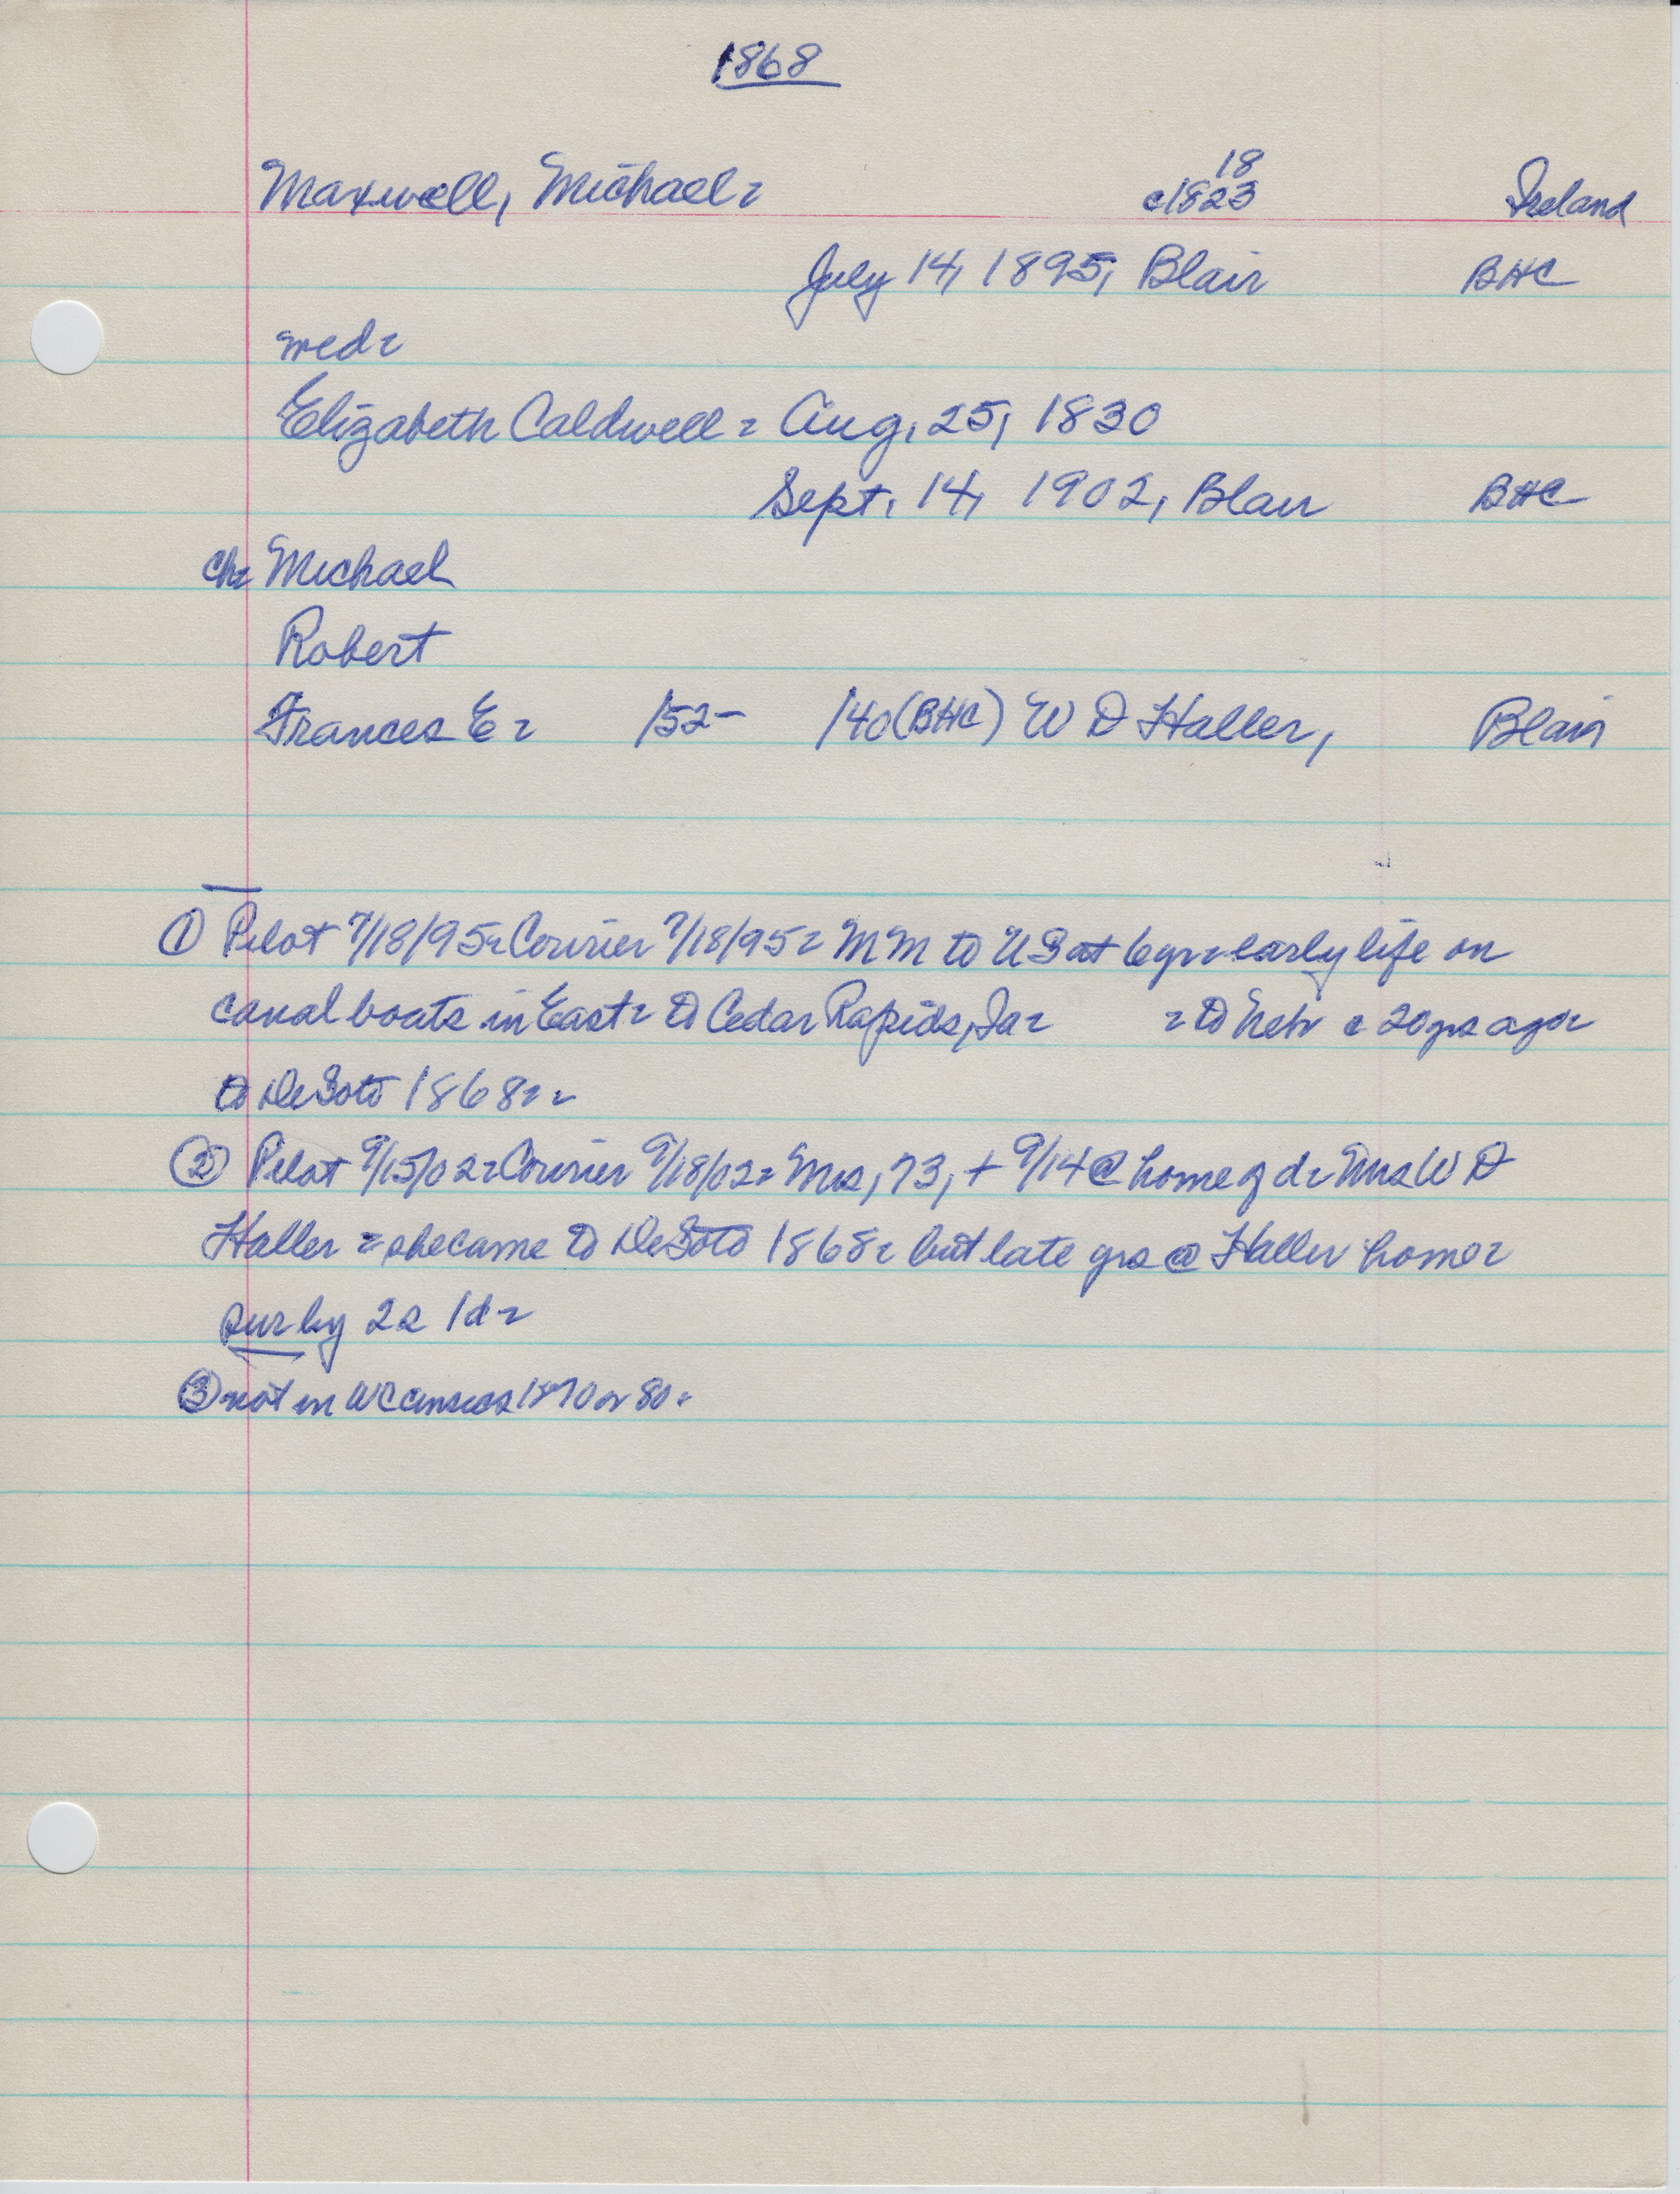 1868
18
Maxwell, Michael= c1823 Ireland
July 14, 1895, Blair BHC
med=
Elizabeth Caldwell = Aug. 25, 1830
Sept. 14, 1902, Blair BHC
ch= Michael
Robert
Frances E = /52- /40(BHC) W D Haller, Blair
① Pilot 7/18/95=Courier 7/18/95= MM to US at 6yr=early life on
canal boats in East= to Cedar Rapids, Ia= =to Neb c 20yrs ago=
to DeSoto 1868==
② Pilot 9/15/02=Courier 9/18/02= Mrs, 73, + 9/14 @ home of d= Mrs W D
Haller = she came to DeSoto 1868= but late yrs @ Haller home=
sur by 2s 1d=
③ not in WC census 1870 or 80=